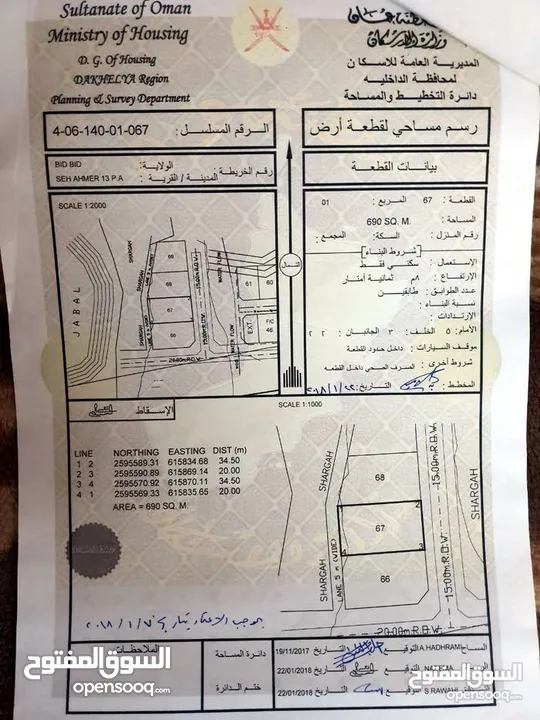 Sultanate of Oman
Ministry of Housing
D. G. Of Housing
DAKHELYA Region
Planning & Survey Department
المديرية العامة للاسكان
لمحافظة الداخليه
دائرة التخطيط والمساحة
4-06-140-01-067
الرقم المسلسل :
رسم مساحي لقطعة أرض
BID BID
الولاية :
SEH AHMER 13 P.A
المدينة / القرية :
رقم الخريطة :
بيانات القطعة
SCALE 1:2000
JABAL
SHARGAH
SHARGAH
69
68
67
66
15.00m R.O.W.
15.00m R.O.W.
WATER FLOW
WATER FLOW
61
60
EXT
F/C
46
20.00m R.O.W.
الشمال
القطعة : 67 المربع : 01
المساحة : 690 SQ. M.
رقم المنزل : السكة: المجمع :
شروط البناء
الإستعمال : سكني فقط
الإرتفاع : ٨م ثمانية أمتار
عدد الطوابق : طابقين
نسبة البناء :
الإرتدادات :
الأمام : 5 الخلف : 3 الجانبان : 2 2
موقف السيارات : داخل حدود القطعة
شروط أخرى : الصرف الصحي داخل القطعة
المخطط :
التاريخ:
الإسقاط :
SCALE 1:1000
LINE NORTHING EASTING DIST (m)
1 2 2595589.31 615834.68 34.50
2 3 2595590.89 615869.14 20.00
3 4 2595570.92 615870.11 34.50
4 1 2595569.33 615835.65 20.00
AREA = 690 SQ. M.
SHARGAH
SHARGAH
SHARGAH
LANE 5 m (WIDE)
68
67
66
2
3
15.00m R.O.W.
15.00m R.O.W.
20.00m R.O.W.
الملاحظات
دائرة المساحة
ختم الدائرة
A HADHRAMI التوقيع التاريخ 19/11/2017
التاريخ 22/01/2018
S RAWAHI التاريخ 22/01/2018
السوق المفتوح
opensooq.com
السوق المفتوح
opensooq.com